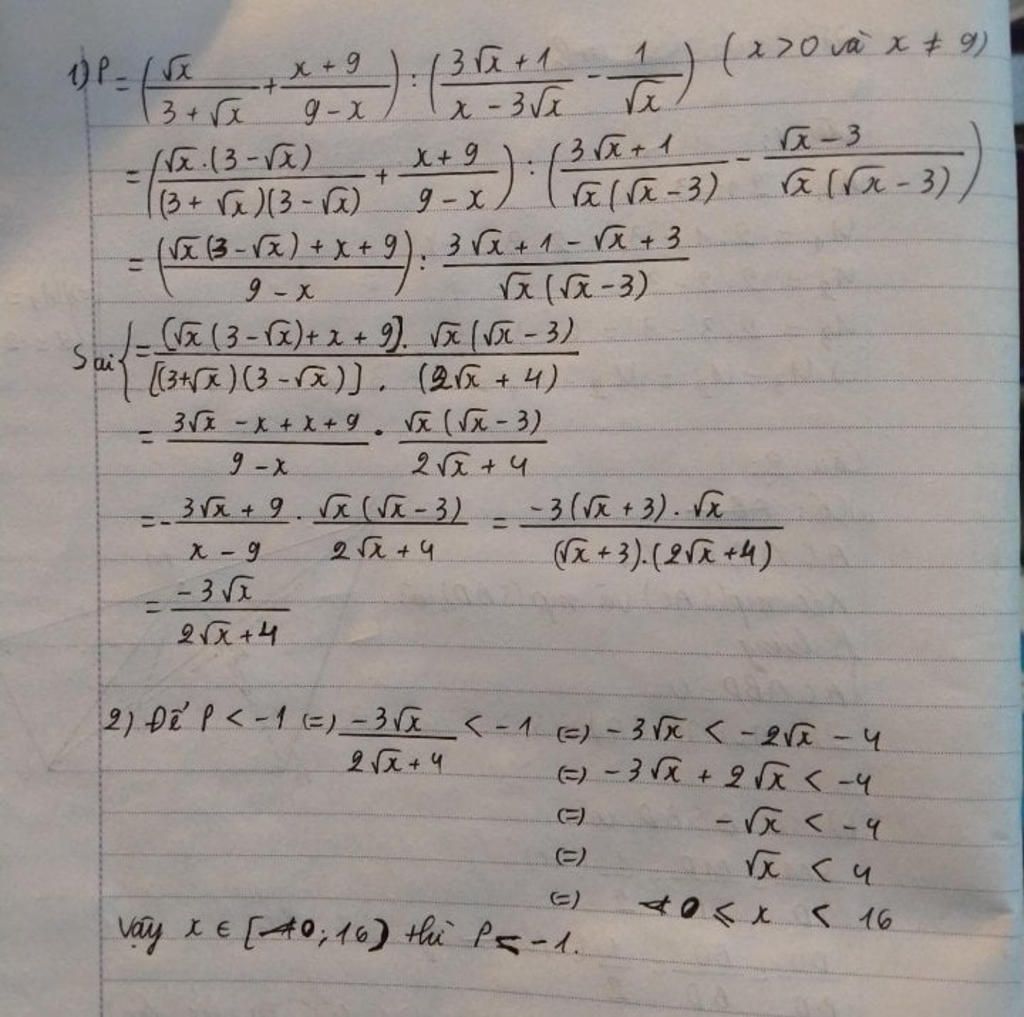 1) P = (√x / (3 + √x) + (x + 9) / (9 - x)) : ((3√x + 1) / (x - 3√x) - 1 / √x) (x > 0 và x ≠ 9)
= (√x.(3 - √x) / ((3 + √x)(3 - √x)) + (x + 9) / (9 - x)) : ((3√x + 1) / (√x(√x - 3)) - (√x - 3) / (√x(√x - 3)))
= ((√x(3 - √x) + x + 9) / (9 - x)) : (3√x + 1 - √x + 3) / (√x(√x - 3))
Sai { = [√x(3 - √x) + x + 9] . √x(√x - 3) / [(3+√x)(3 - √x)] . (2√x + 4)
= (3√x - x + x + 9) / (9 - x) . √x(√x - 3) / (2√x + 4)
= - (3√x + 9) / (x - 9) . √x(√x - 3) / (2√x + 4) = -3(√x + 3) . √x / (√x + 3).(2√x + 4)
= -3√x / (2√x + 4)
2) Để P < -1 (=) -3√x / (2√x + 4) < -1 (=) -3√x < -2√x - 4
(=) -3√x + 2√x < -4
(=) -√x < -4
(=) √x < 4
(=) 0 ≤ x < 16
Vậy x ∈ [0; 16) thì P < -1.